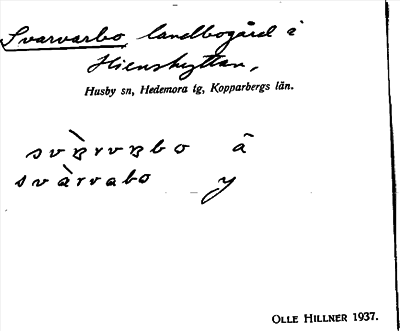 Svarvarbo, landbogård i
Hienshyttan,
Husby sn, Hedemora tg, Kopparbergs län.
svàrvabo y
OLLE HILLNER 1937.